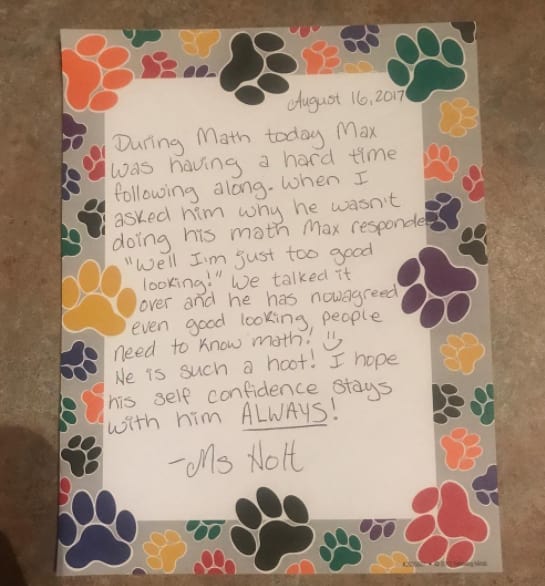 August 16, 2017
During Math today Max
was having a hard time
following along. When I
asked him why he wasn't
doing his math Max responde
"Well I'm just too good
looking!" We talked it
over and he has now agreed
even good looking people
need to know math!
He is such a hoot! I hope
his self confidence stays
with him ALWAYS!
-Ms Holt